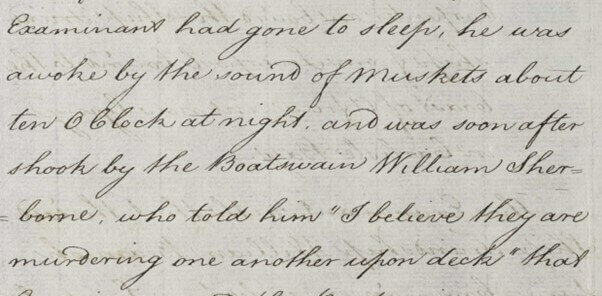 Examinant had gone to sleep, he was
awoke by the sound of Muskets about
ten O'Clock at night, and was soon after
shook by the Boatswain William Sher=
=borne, who told him "I believe they are
murdering one another upon deck" that